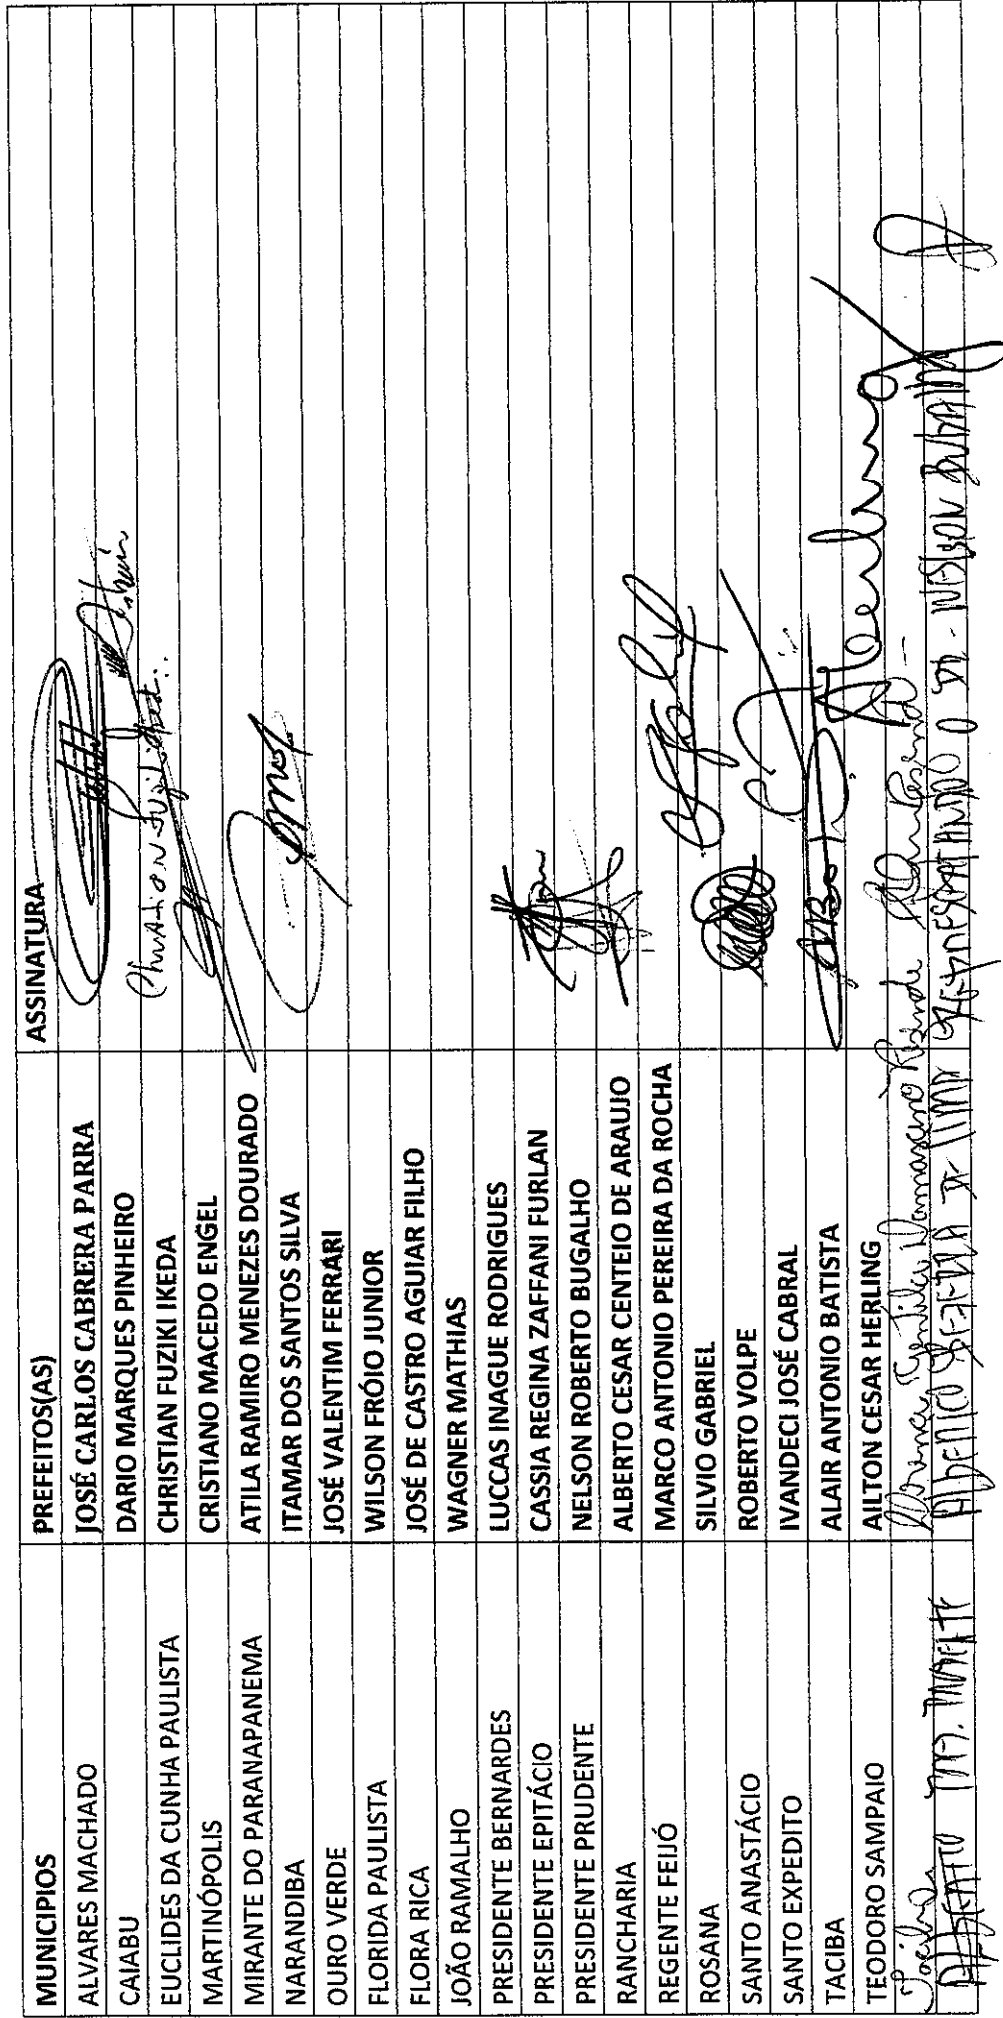 MUNICIPIOS PREFEITOS(AS) ASSINATURA
ALVARES MACHADO JOSÉ CARLOS CABRERA PARRA
CAIABU DARIO MARQUES PINHEIRO
EUCLIDES DA CUNHA PAULISTA CHRISTIAN FUZIKI IKEDA
MARTINÓPOLIS CRISTIANO MACEDO ENGEL
MIRANTE DO PARANAPANEMA ATILA RAMIRO MENEZES DOURADO
NARANDIBA ITAMAR DOS SANTOS SILVA
OURO VERDE JOSÉ VALENTIM FERRARI
FLORIDA PAULISTA WILSON FRÓIO JUNIOR
FLORA RICA JOSÉ DE CASTRO AGUIAR FILHO
JOÃO RAMALHO WAGNER MATHIAS
PRESIDENTE BERNARDES LUCCAS INAGUE RODRIGUES
PRESIDENTE EPITÁCIO CASSIA REGINA ZAFFANI FURLAN
PRESIDENTE PRUDENTE NELSON ROBERTO BUGALHO
RANCHARIA ALBERTO CESAR CENTEIO DE ARAUJO
REGENTE FEIJÓ MARCO ANTONIO PEREIRA DA ROCHA
ROSANA SILVIO GABRIEL
SANTO ANASTÁCIO ROBERTO VOLPE
SANTO EXPEDITO IVANDECI JOSÉ CABRAL
TACIBA ALAIR ANTONIO BATISTA
TEODORO SAMPAIO AILTON CESAR HERLING
Damasceno Resende
ALFREDO M. LIMA O DR. WILSON